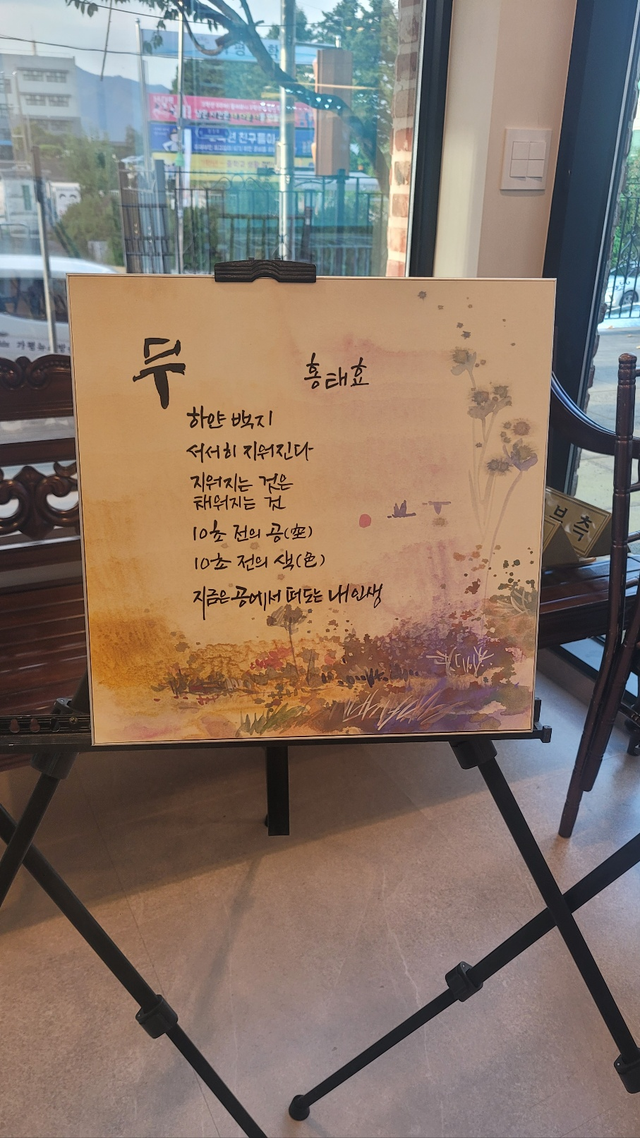 친구들아
무
홍태효
하얀 백지
서서히 지워진다
지워지는 것은
채워지는 것
10초 전의 공(空)
10초 전의 색(色)
지금은 공에서 떠도는 내 인생